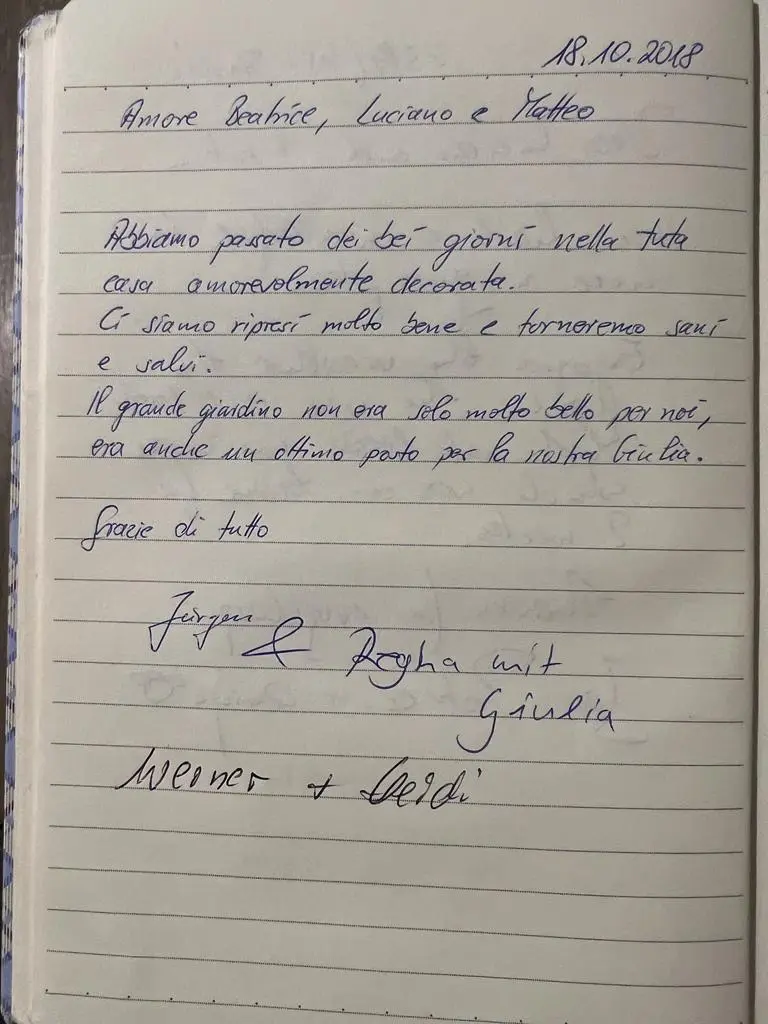 18.10.2018
Amore Beatrice, Luciano e Matteo
Abbiamo passato dei bei giorni nella tuta
casa amorevolmente decorata.
Ci siamo ripresi molto bene e torneremo sani
e salvi.
Il grande giardino non era solo molto bello per noi,
era anche un ottimo posto per la nostra Giulia.
Grazie di tutto
Jürgen
& mit
Giulia
Werner + Heidi